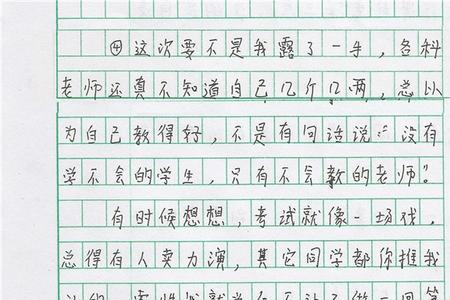 ④这次要不是我露了一手，各科
老师还真不知道自己几斤几两，总以
为自己教得好，不是有句话说：“没有
学不会的学生，只有不会教的老师？
有时候想想，考试就像一场戏，
总得有人卖力演，其它同学都你推我